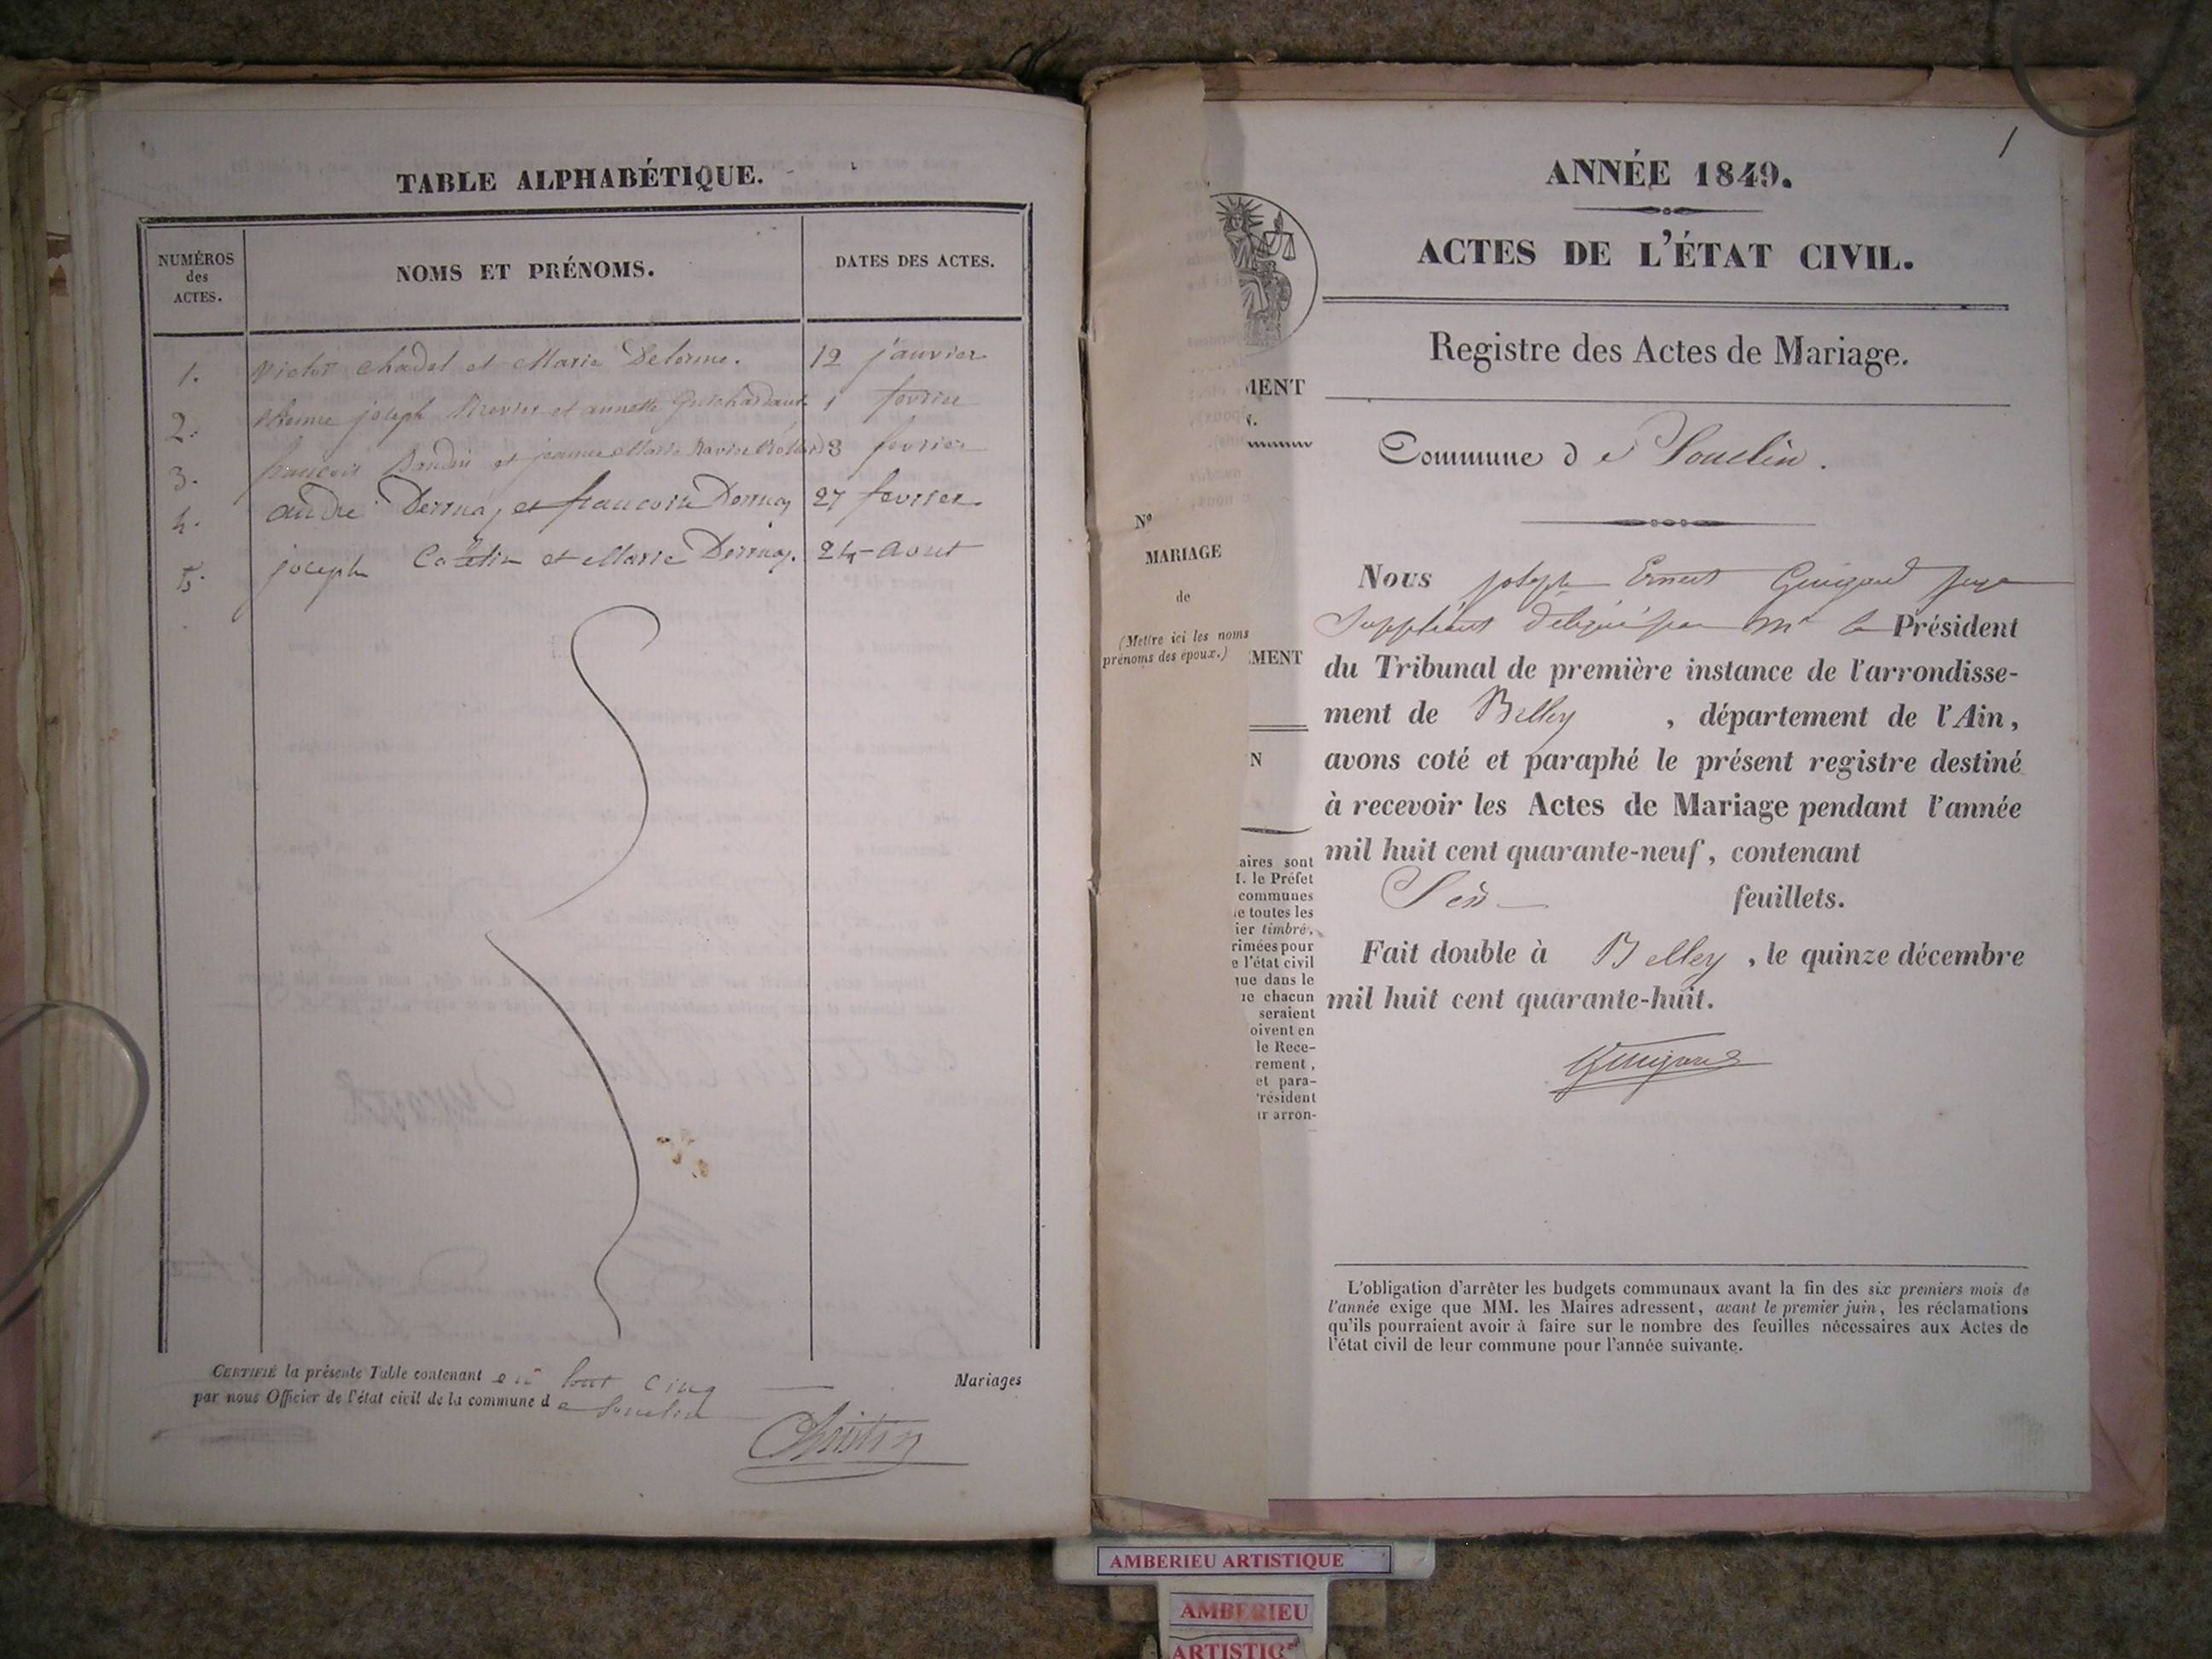 TABLE ALPHABÉTIQUE.
NUMÉROS
des
ACTES.
NOMS ET PRÉNOMS.
DATES DES ACTES.
1. Victor Chadel et Marie Delorme. 12 janvier
2. joseph et annette 1 fevrier
3. francois Baudin et jeanne Marie 3 fevrier
4. andré Derruaz et francoise Derruaz 27 fevrier
5. joseph et Marie Derruaz. 24 aout
CERTIFIÉ la présente Table contenant en tout cinq Mariages
par nous Officier de l'état civil de la commune de Souclin
Christin
MENT
N.
N°
MARIAGE
de
(Mettre ici les noms
prénoms des époux.)
EMENT
N
aires sont
I. le Préfet
communes
e toutes les
ier timbré,
rimées pour
e l'état civil
que dans le
ie chacun
seraient
oivent en
le Rece-
rement,
et para-
résident
ir arron-
1
ANNÉE 1849.
ACTES DE L'ÉTAT CIVIL.
Registre des Actes de Mariage.
Commune de Souclin.
Nous joseph Ernest Guigard juge
Suppléant délégué par Mr le Président
du Tribunal de première instance de l'arrondisse-
ment de Belley, département de l'Ain,
avons coté et paraphé le présent registre destiné
à recevoir les Actes de Mariage pendant l'année
mil huit cent quarante-neuf, contenant
feuillets.
Fait double à Belley, le quinze décembre
mil huit cent quarante-huit.
Guigard
L'obligation d'arrêter les budgets communaux avant la fin des six premiers mois de
l'année exige que MM. les Maires adressent, avant le premier juin, les réclamations
qu'ils pourraient avoir à faire sur le nombre des feuilles nécessaires aux Actes de
l'état civil de leur commune pour l'année suivante.
AMBERIEU ARTISTIQUE
AMBERIEU
ARTISTIQ